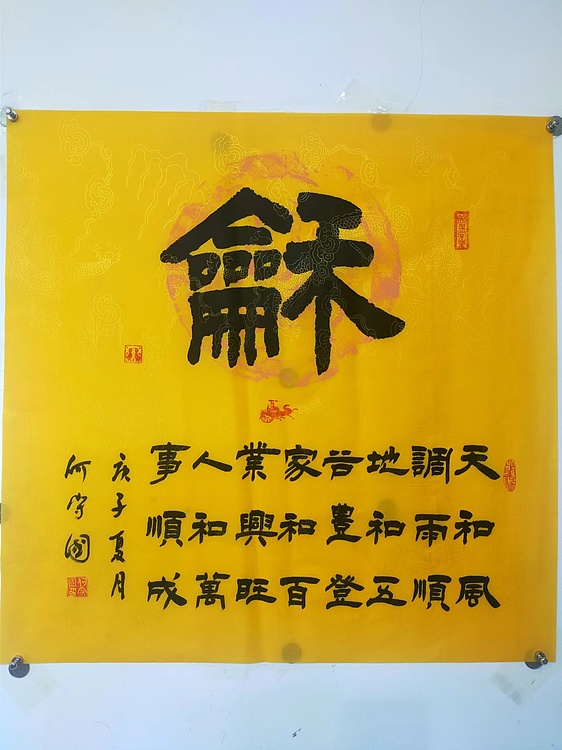 龢
天和風
調雨順
地和五
谷豊登
家和百
業興旺
人和萬
事順成
庚子夏月
何守國